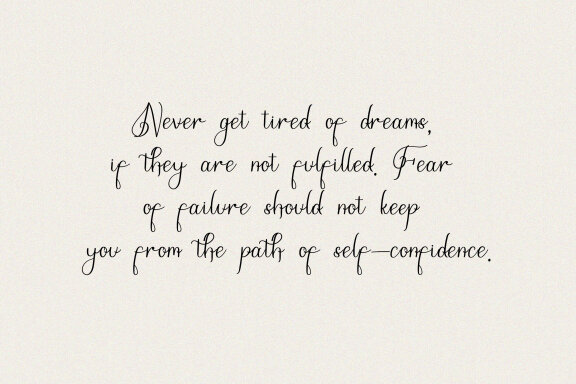 Never get tired of dreams,
if they are not fulfilled. Fear
of failure should not keep
you from the path of self-confidence.